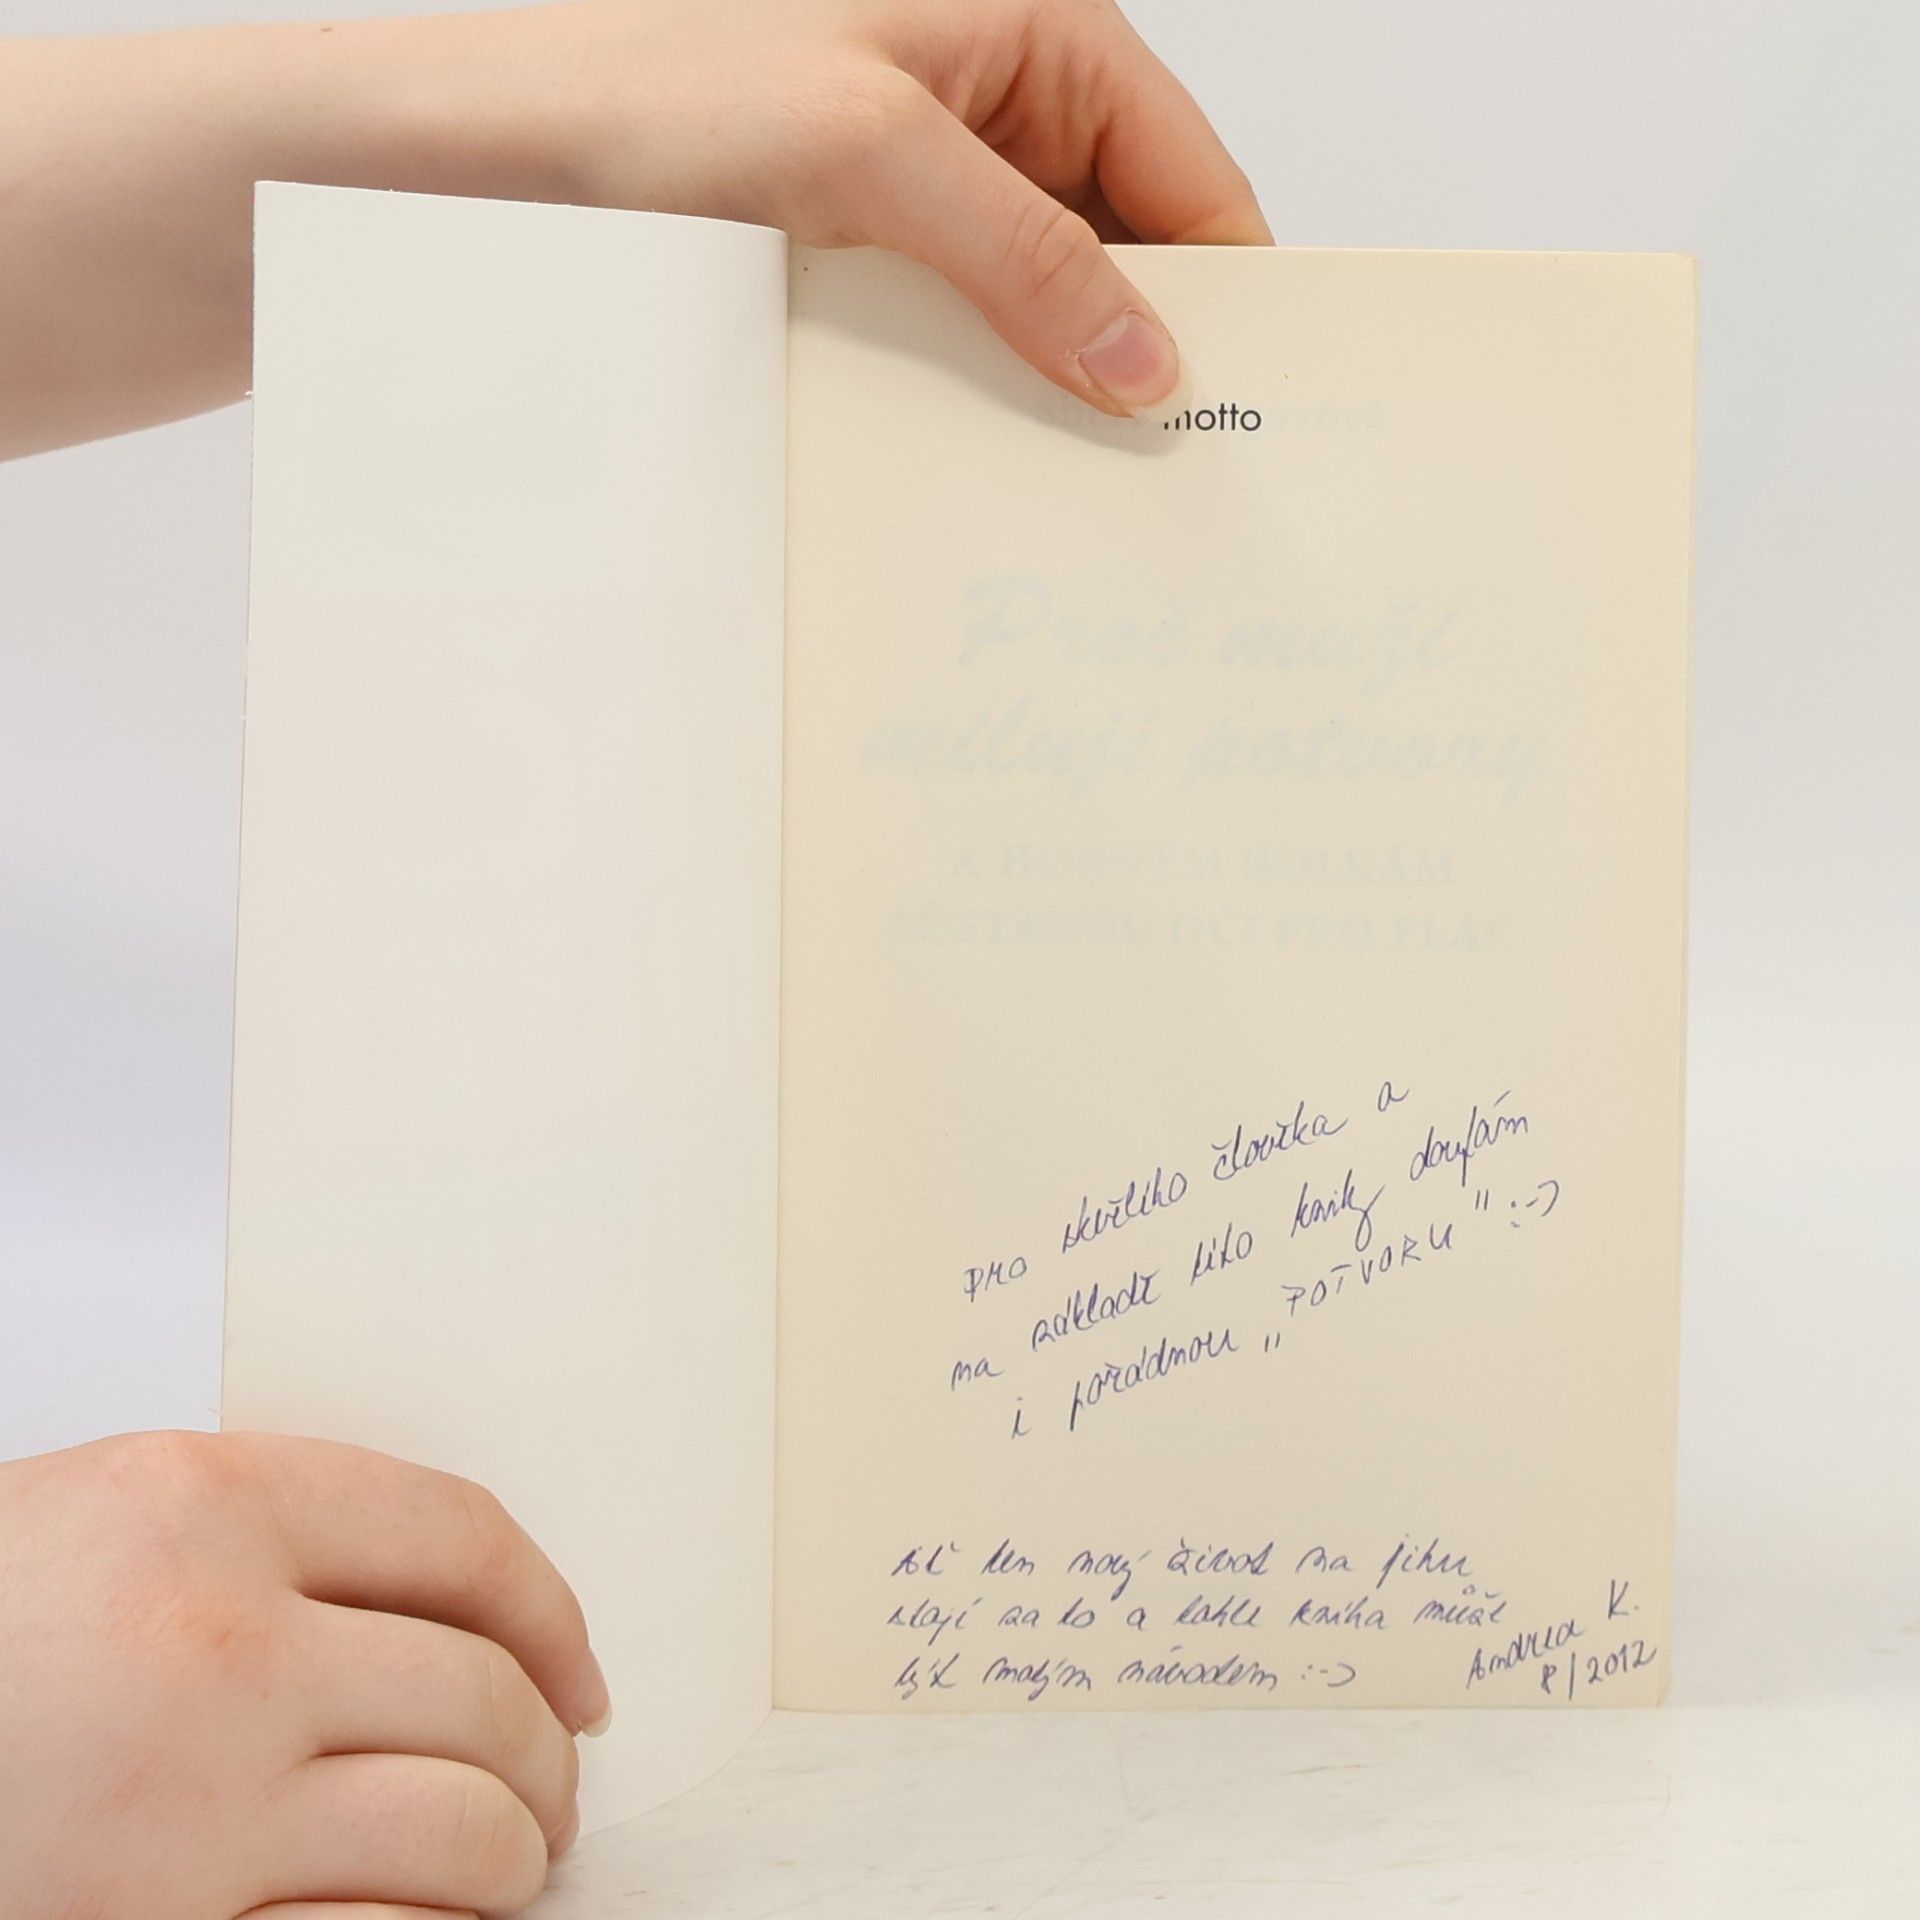 motto
Proč muži
milují potvory
A HODNÝM HOLKÁM
OČI PRO PLÁČ
pro skvělého člověka a
na základě této knihy doufám
i pořádnou „POTVORU" :-)
ať ten nový život na jihu
stojí za to a tahle kniha může
být malým návodem :-)
Andrea K.
8/2012